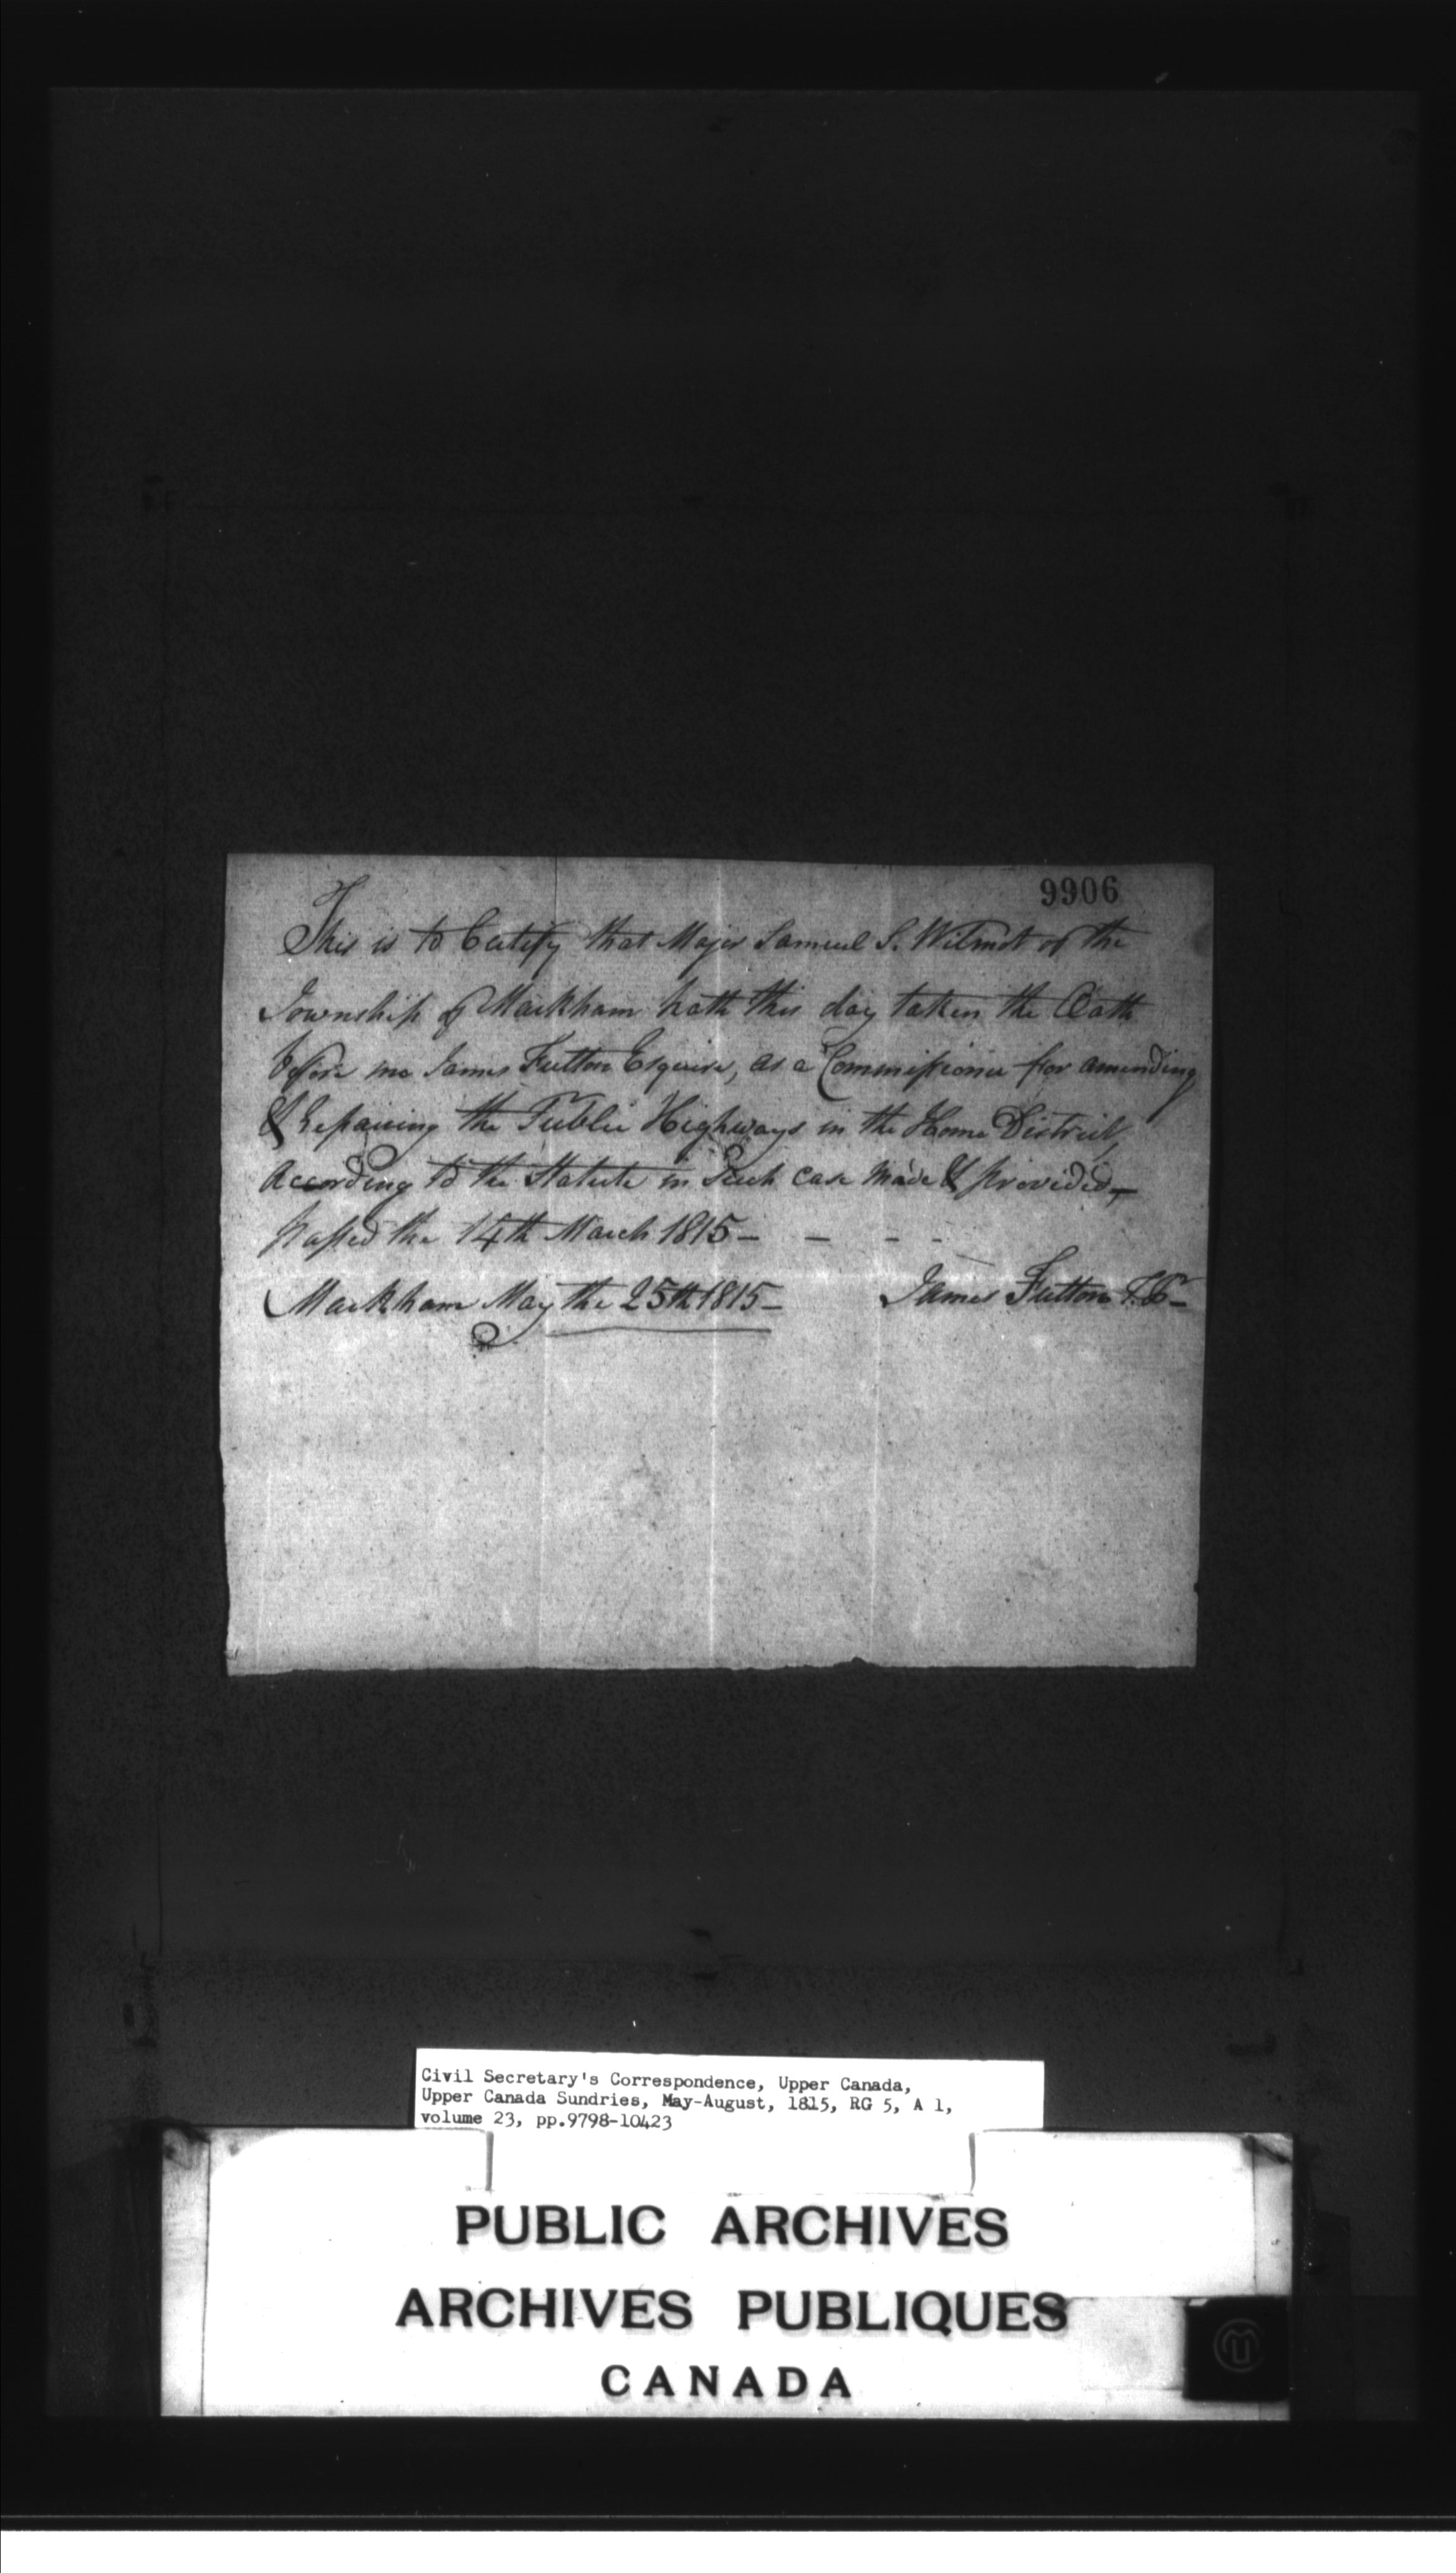 9906
This is to Certify that Major Samuel S. Wilmot of the
Township of Markham hath this day taken the Oath
before me James Fulton Esquire, as a Commissioner for amending
& Repairing the Public Highways in the Home District,
According to the Statute in Such case made & provided,
passed the 14th March 1815 — — - -
Markham May the 25th 1815 —
James Fulton J.P. —
Civil Secretary's Correspondence, Upper Canada,
Upper Canada Sundries, May-August, 1815, RG 5, A 1,
volume 23, pp.9798-10423
PUBLIC ARCHIVES
ARCHIVES PUBLIQUES
CANADA